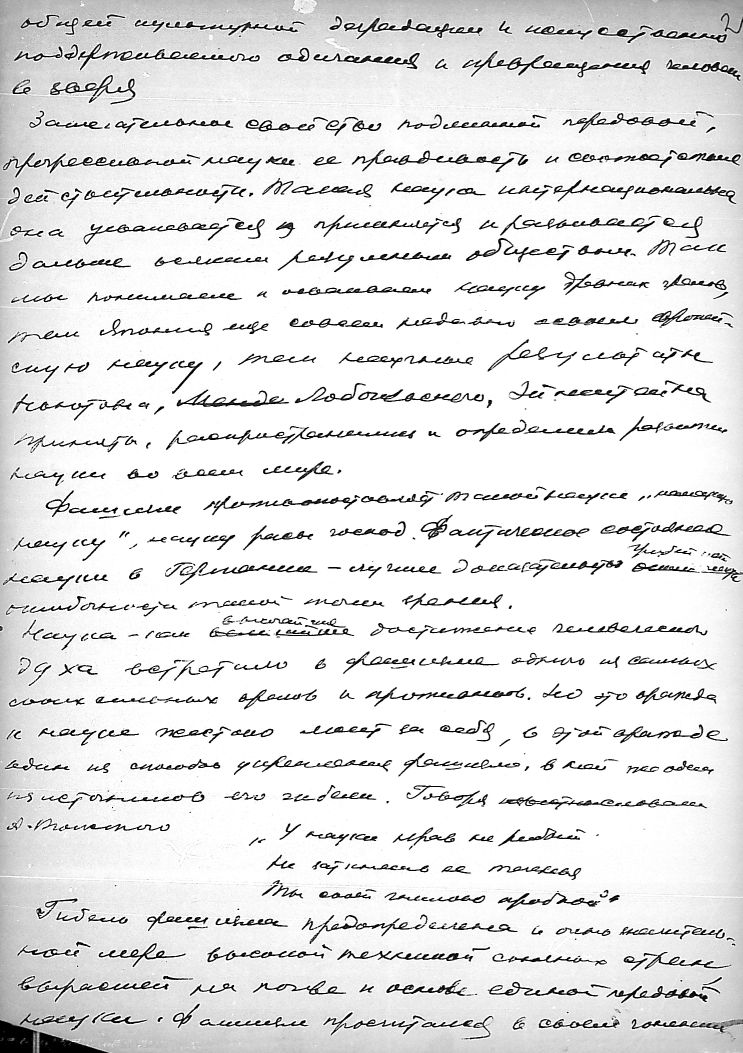 общей культурной деградации и искусственно
поддерживаемого одичания и превращения человека
в зверя
Замечательное свойство подлинной передовой,
прогрессивной науки ее правдивость и соответствие
действительности. Такая наука интернациональна
она усваивается и принимается и развивается
дальше всяким разумным обществом. Так
мы понимаем и осваиваем науку древних греков,
так Япония еще совсем недавно освоила европей-
скую науку, так научные результаты
Ньютона, Менде Лобачевского, Эйнштейна
приняты, распространились и определили развитие
науки во всем мире.
Фашизм противопоставляет такой науке „немецкую
науку", науку расы господ. Фактическое состояние
науки в Германии – лучшее доказательство
ошибочности такой точки зрения.
высочайшее
Наука – как достижение человеческого
духа встретило в фашизме одного из самых
своих сильных врагов и противников. Но эта вражда
к науке жестоко мстит за себя, в этой вражде
один из способов укрепления фашизма, в ней же один
из источников его гибели. Говоря словами
А. Толстого
„У науки нрав не робкий
Не заткнешь ее теченья
Ты своей гнилою пробкой"
Гибель фашизма предопределена и очень значитель-
ной мере высокой техникой союзных стран
выросшей на почве и основе единой передовой
науки. Фашизм просчитался в своем гонении